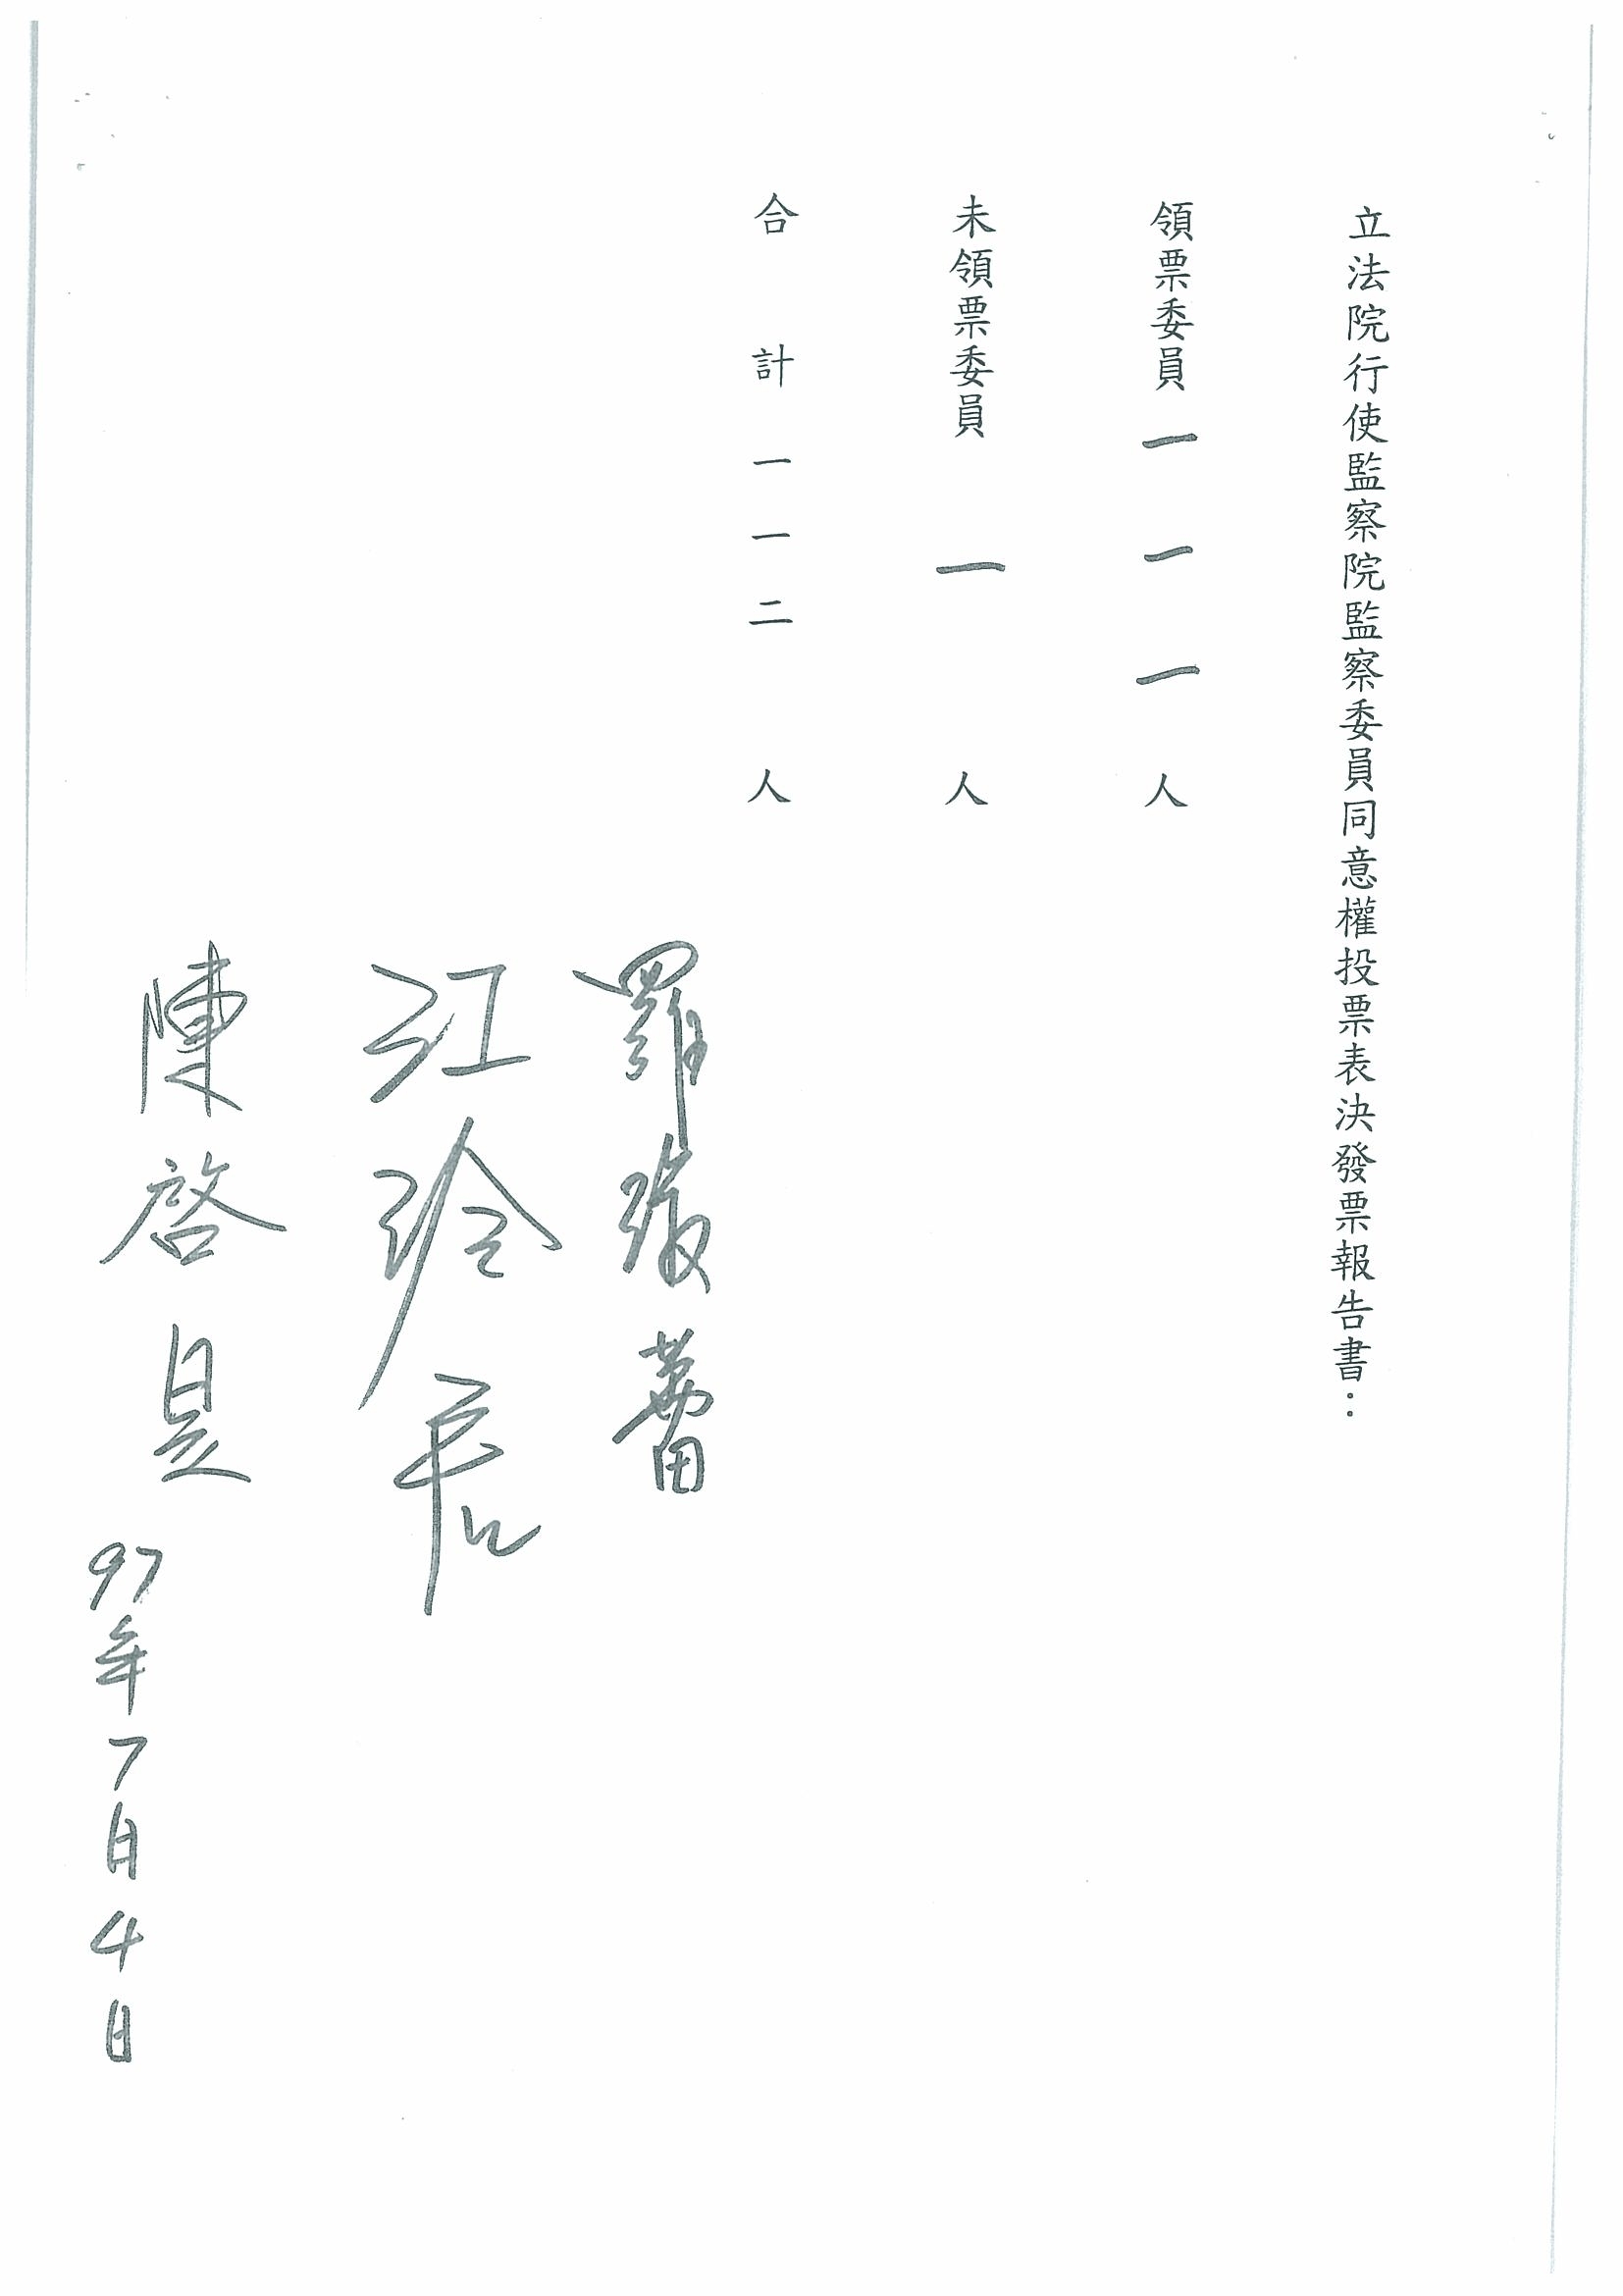 立法院行使監察院監察委員同意權投票表決發票報告書：
領票委員一一一人
未領票委員一人
合計一一二人
羅淑蕾
江玲君
陳啓昱
97年7月4日